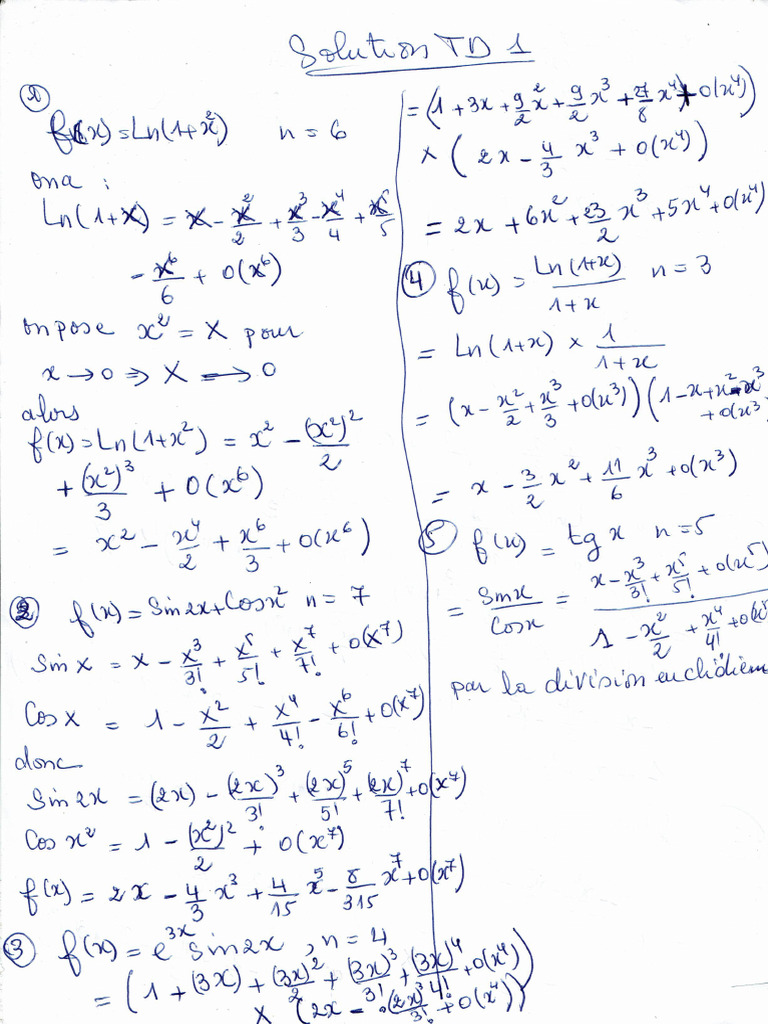 Solution TD 1
①
f(x) = Ln(1+x²) n = 6
on a :
Ln(1+X) = X - X²/2 + X³/3 - X⁴/4 + X⁵/5
- X⁶/6 + O(X⁶)
on pose x² = X pour
x → 0 ⇒ X → 0
alors
f(x) = Ln(1+x²) = x² - (x²)²/2
+ (x²)³/3 + O(x⁶)
= x² - x⁴/2 + x⁶/3 + O(x⁶)
② f(x) = Sin2x + Cosx² n = 7
Sin X = X - X³/3! + X⁵/5! + X⁷/7! + O(X⁷)
Cos X = 1 - X²/2 + X⁴/4! - X⁶/6! + O(X⁷)
donc
Sin 2x = (2x) - (2x)³/3! + (2x)⁵/5! + (2x)⁷/7! + O(x⁷)
Cos x² = 1 - (x²)²/2 + O(x⁷)
f(x) = 2x - 4/3 x³ + 4/15 x⁵ - 8/315 x⁷ + O(x⁷)
③ f(x) = e³ˣ sin2x , n = 4
= (1 + (3x) + (3x)²/2 + (3x)³/3! + (3x)⁴/4! + O(x⁴))
× (2x - (2x)³/3! + O(x⁴))
= (1 + 3x + 9/2 x² + 9/2 x³ + 27/8 x⁴) + O(x⁴))
× (2x - 4/3 x³ + O(x⁴))
= 2x + 6x² + 23/2 x³ + 5x⁴ + O(x⁴)
④ f(x) = Ln(1+x)/1+x n = 3
= Ln(1+x) × 1/1+x
= (x - x²/2 + x³/3 + O(x³)) (1 - x + x² - x³
+ O(x³)
= x - 3/2 x² + 11/6 x³ + O(x³)
⑤ f(x) = tg x n = 5
= Sinx/Cosx = x - x³/3! + x⁵/5! + O(x⁵)/1 - x²/2 + x⁴/4! + O(x⁵
par la division euclidienn